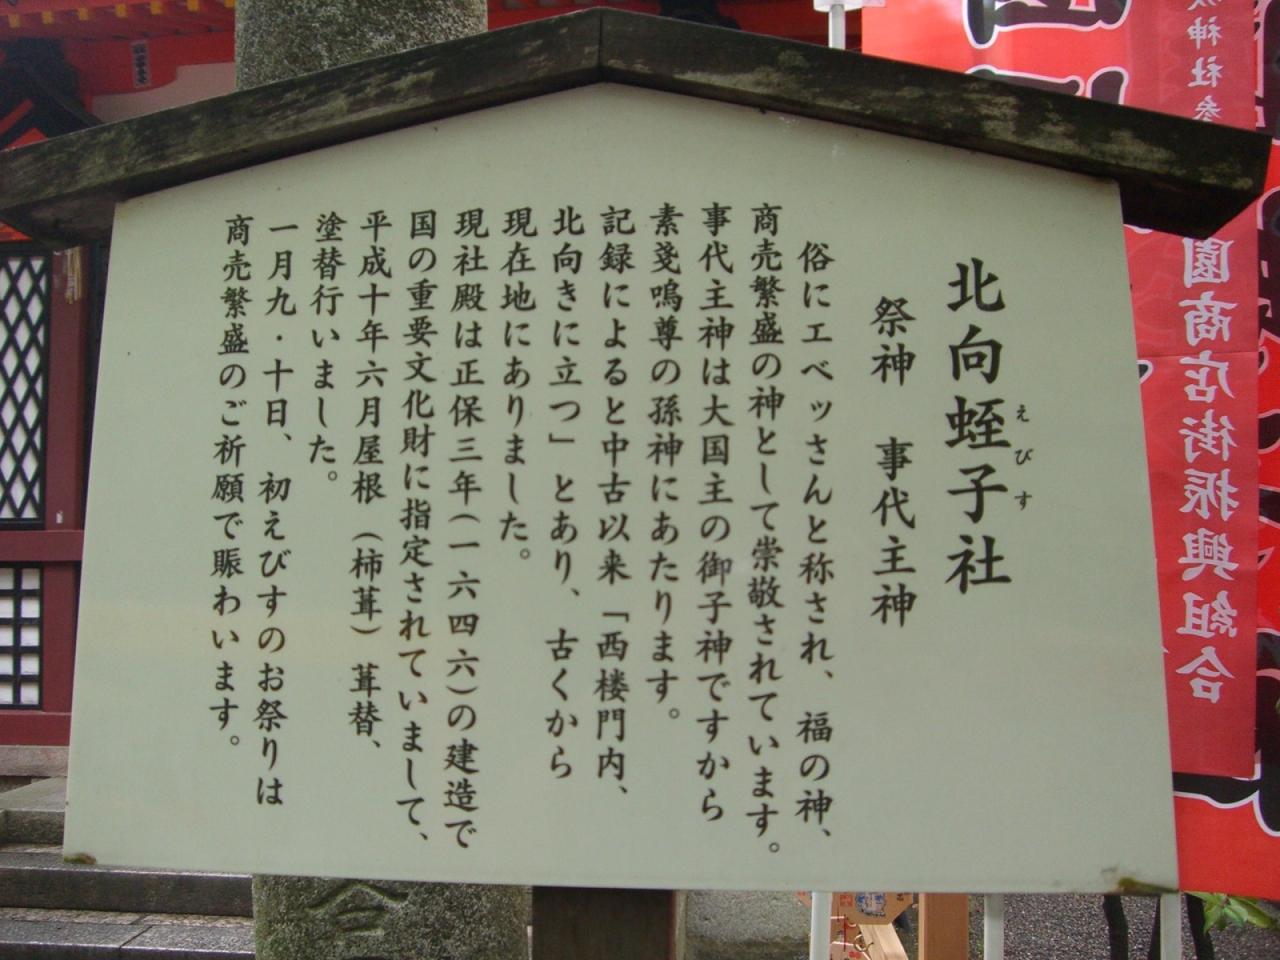 北向蛭子社
えびす
祭神 事代主神
俗にエベッさんと称され、福の神、
商売繁盛の神として崇敬されています。
事代主神は大国主の御子神ですから
素戔嗚尊の孫神にあたります。
記録によると中古以来「西楼門内、
北向きに立つ」とあり、古くから
現在地にありました。
現社殿は正保三年(一六四六)の建造で
国の重要文化財に指定されていまして、
平成十年六月屋根(柿葺)葺替、
塗替行いました。
一月九・十日、初えびすのお祭りは
商売繁盛のご祈願で賑わいます。
園商店街振興組合
神社参